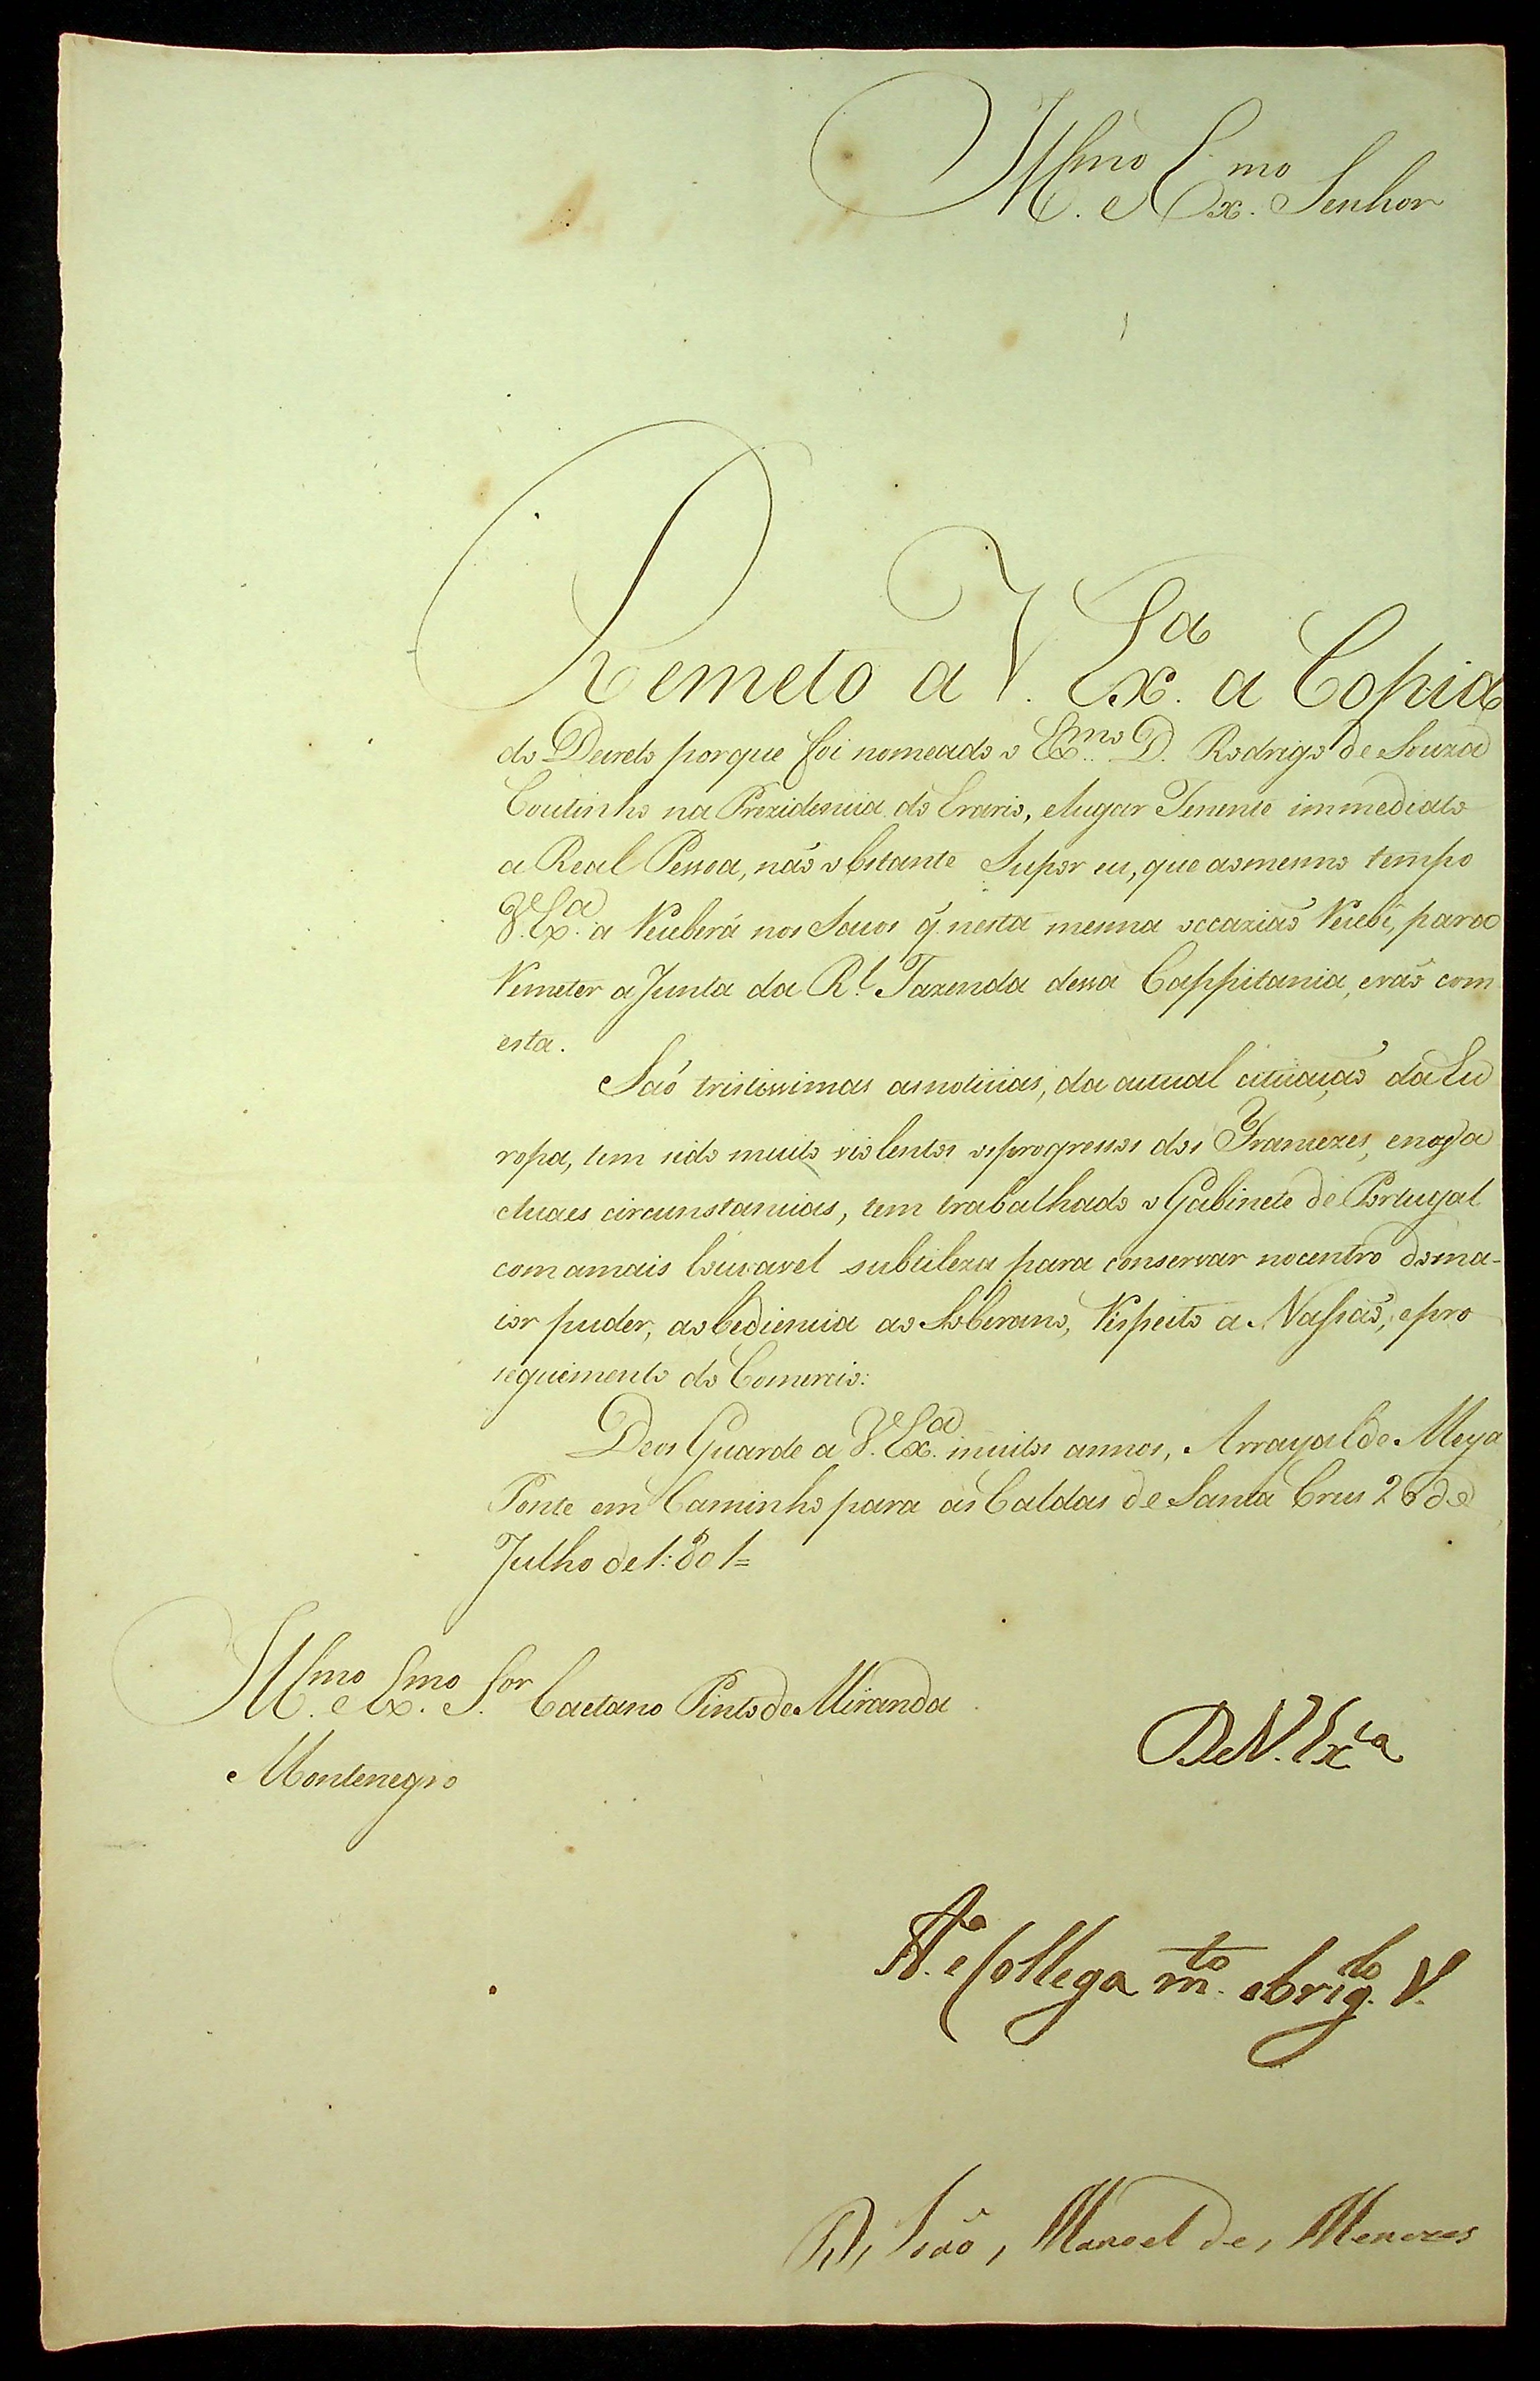 Ill.mo e Ex.mo Senhor
Remeto a V. Ex.a a Copia
do Decreto porque foi nomeado o Ex.mo D. Rodrigo de Souza
Coutinho na Prezidencia do Erario, elugar Tenente immediato
a Real Pessoa, não obstante Supor eu, que aomesmo tempo
V. Ex.a a Receberá nos Sacos q̃ nesta mesma occazião Recebi, para
Remeter a Junta da R.l Fazenda dessa Cappitania, evão com
esta.
São tristissimas asnoticias, da actual cituação da Eu
ropa, tem sido muito violentos osprogressos dos Francezes, enas a
ctuaes circunstancias, tem trabalhado o Gabinete de Portugal
comamais louvavel subtileza para conservar nocentro doma-
ior puder, aobediencia ao Soberano, Respeito a Nassão, epro
seguimento do Comercio:
Deos Guarde a V. Ex.a muitos annos, Arrayal de Meya
Ponte em Caminho para as Caldas de Santa Crus 26 de
Julho de 1:801=
Ill.mo e Ex.mo S.or Caetano Pinto de Miranda
Montenegro
De V. Ex.ca
A.o e Collega m.to obrig.do V.
D, João, Manoel de, Menezes